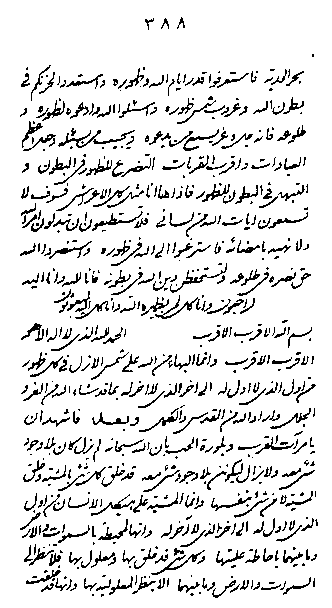 ٣٨٨
بحر الحديد فاستعرفوا قدر ايام الله وظهوره واستعدوا لحزنكم في
بطون الله وغروب شمس ظهوره واسئلوا الله وادعوه لظهوره و
طلوعه فانه جل وعز يسمع من يدعوه ويجيب من يسئله وجدا اعظم
العبادات واقرب القربات التضرع للظهور في البطون و
التهيئ في البطون للظهور فاذا هذا انا مثلى على الاعراش فسوف لا
تسمعون ايات الله من لساني فلا تستطيعون ان تبدلون امر الله
ولا نهيه بامضائه فاسترعوا الى الله في ظهوره واستنصروا الله
حق نصره في طلوعه ولتستحفظن دين الله في بطونه فانا لله وانا اليه
وانا كل لمن يظهره الله وانا كل اليه
بسم الله الاقرب الاقرب الحمد لله الذي لا اله الا هو
الاقرب الاقرب وانما البهاء من الله على شمس الازل في كل ظهور
من اول الذي لا اول له الى اخر الذي لا اخر له بما قد شاء الله من العز و
الجلال واراد الله من القدس والكمال وبعد فاشهد ان
يا مرات القرب وبلورة الحب بان الله سبحانه لم يزل كان بلا وجود
شيء معه ولا يزال ليكونن بلا وجود شيء معه قد خلق كل شيء بالمشية وخلق
المشية لا من شيء بنفسها وانما المشية على هيكل الانسان من اول
الذي لا اول له الى اخر الذي لا اخر له وانها المحيطة بالسموات والارض
وما بينهما باحاطة عليتها وكل شيء قد خلق بها ومعلول بها فلا تنظر الى
السموات والارض وما بينهما الا بنظر المعلولية بها وانها قد خلقت